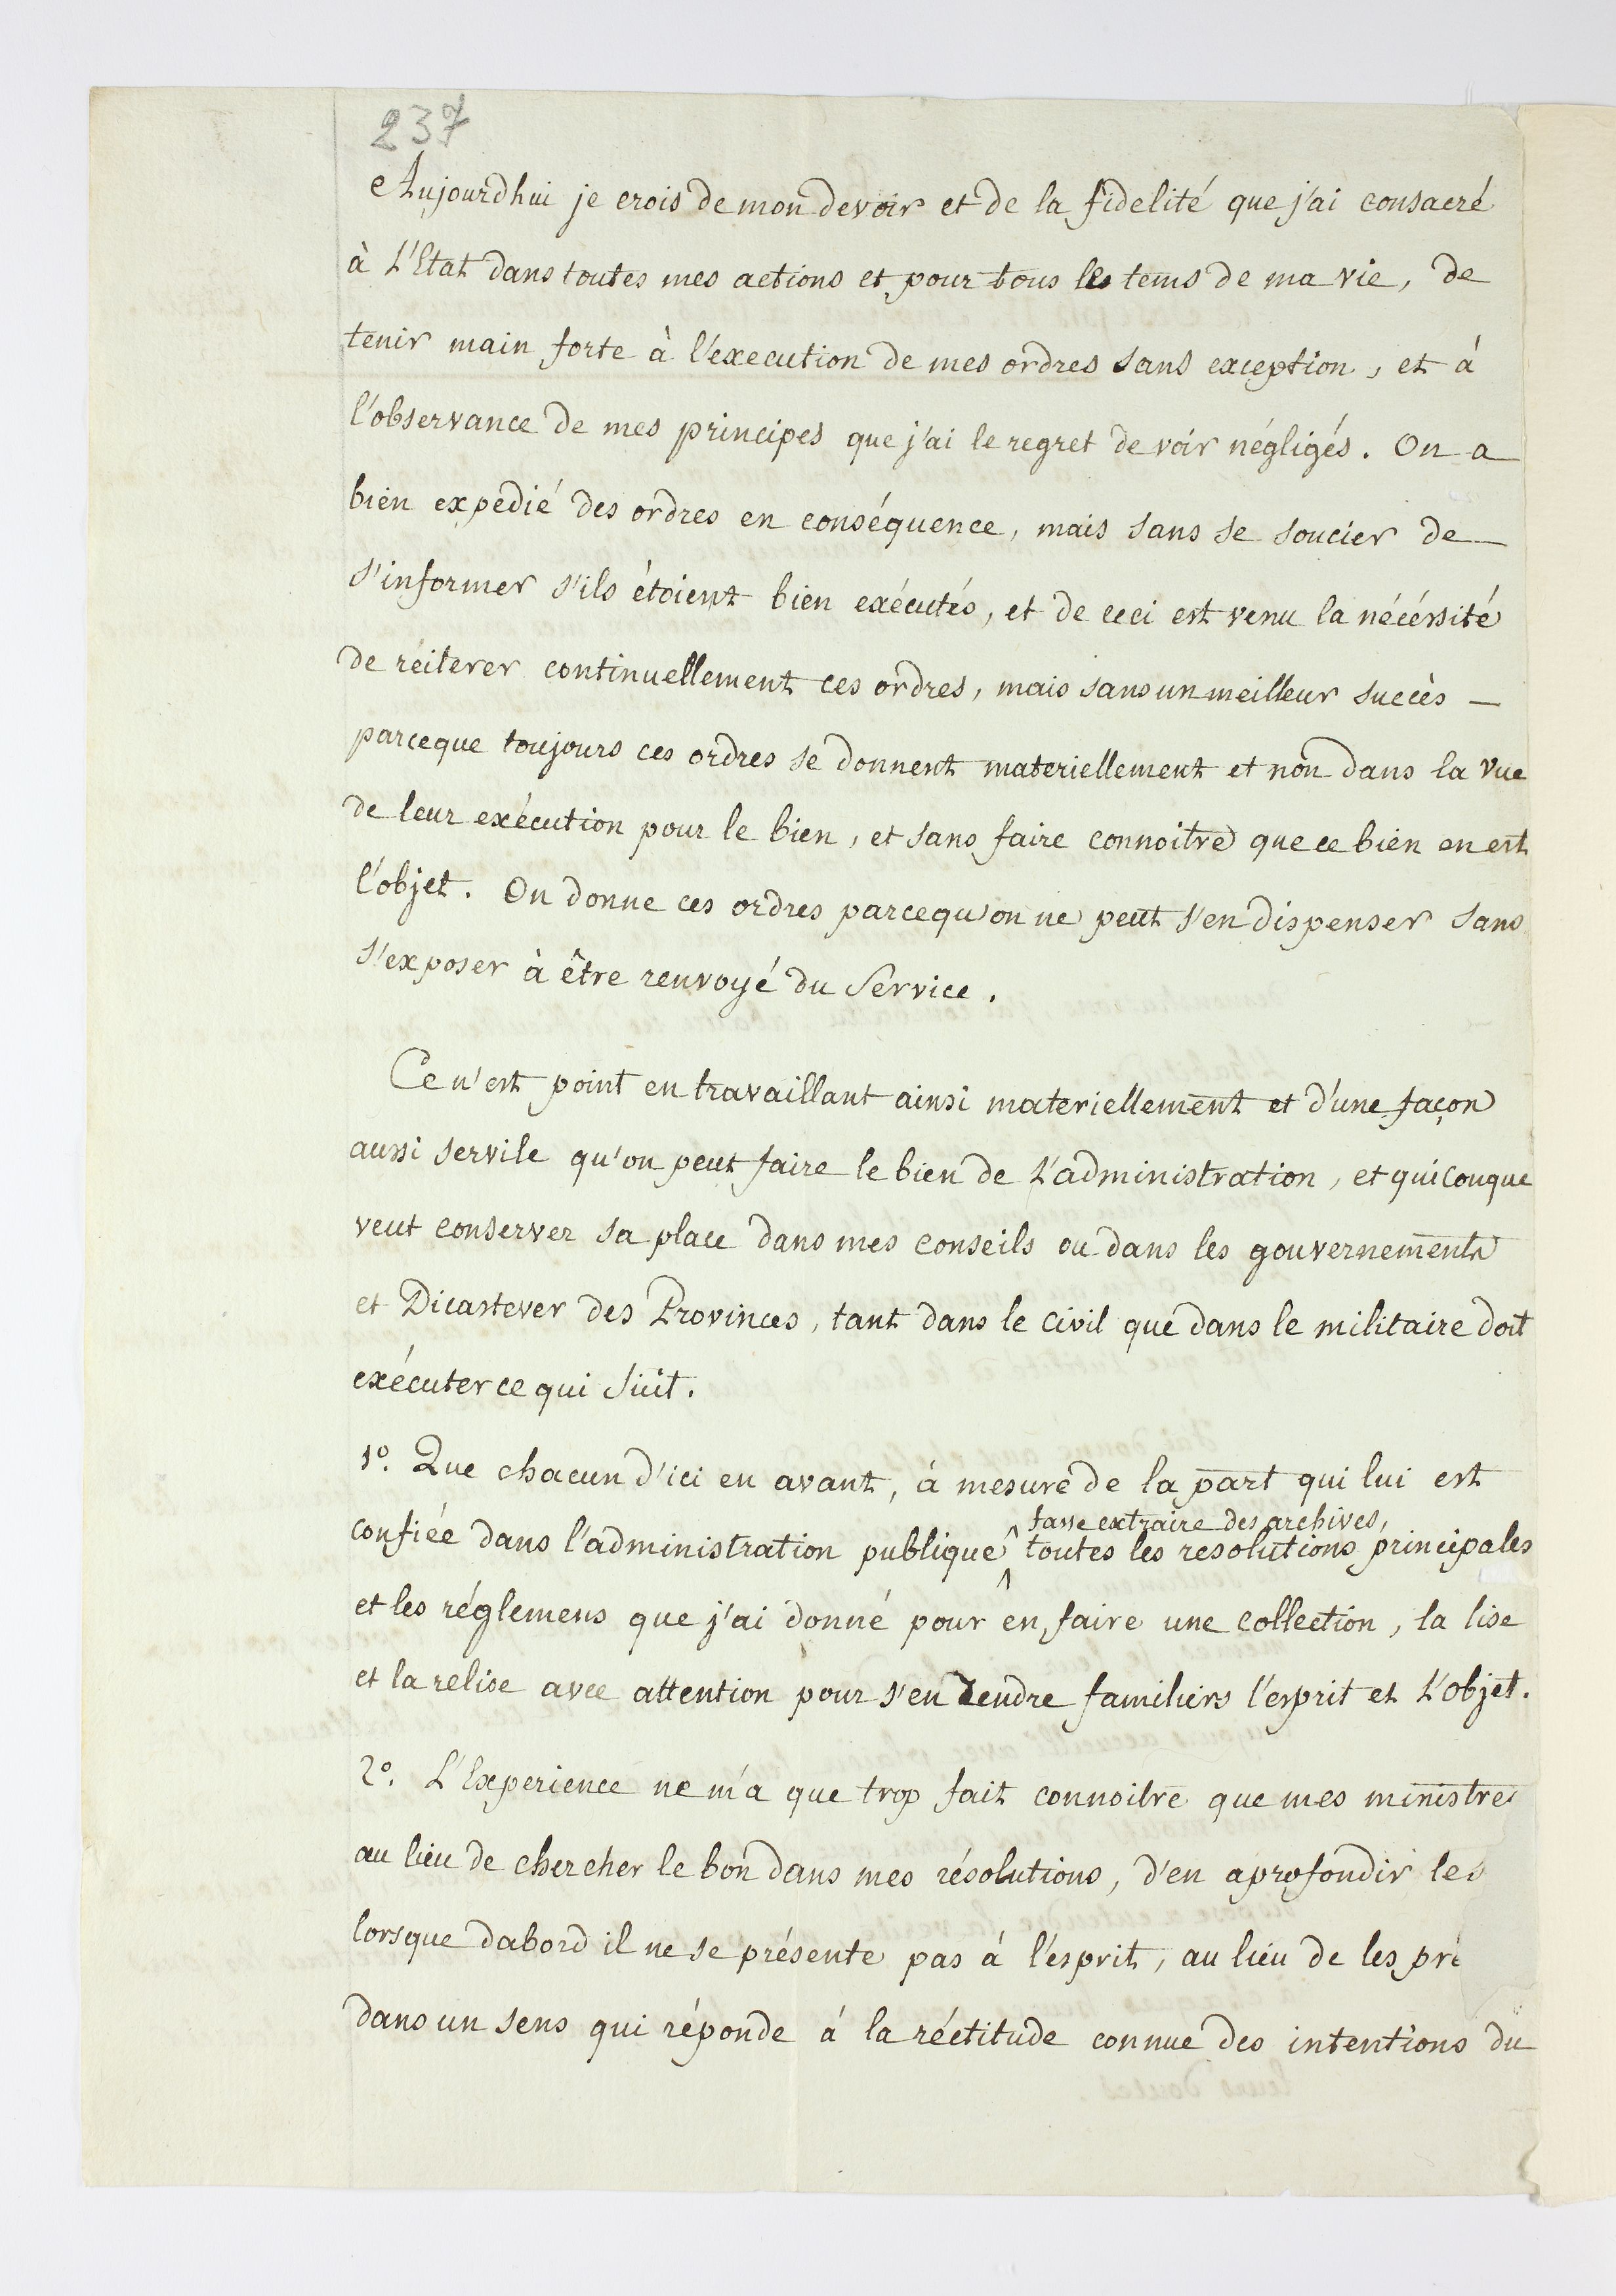 237
Aujourdhui je crois de mon devoir et de la fidelité que j'ai consacré
à L'Etat dans toutes mes actions et pour tous les tems de ma vie, de
tenir main forte à l'execution de mes ordres sans exception, et à
l'observance de mes principes que j'ai le regret de voir négligés. On a
bien expedié des ordres en conséquence, mais sans se soucier de
s'informer s'ils étoient bien exécutés, et de ceci est venu la nécéssité
de réiterer continuellement ces ordres, mais sans un meilleur succès —
parceque toujours ces ordres se donnent materiellement et non dans la vue
de leur exécution pour le bien, et sans faire connoitre que ce bien en est
l'objet. On donne ces ordres parcequ'on ne peut s'en dispenser sans
s'exposer à être renvoyé du Service.
Ce n'est point en travaillant ainsi materiellement et d'une façon
aussi servile qu'on peut faire le bien de L'administration, et quiconque
veut conserver sa place dans mes conseils ou dans les gouvernements
et Dicastever des Provinces, tant dans le civil que dans le militaire doit
exécuter ce qui suit.
1º. Que chacun d'ici en avant, à mesure de la part qui lui est
fasse extraire des archives,
confiée dans l'administration publique ^ toutes les resolutions principales
et les réglemens que j'ai donné pour en faire une collection, la lise
et la relise avec attention pour s'en rendre familiers l'esprit et L'objet.
2º. L'Experience ne m'a que trop fait connoitre que mes ministres
au lieu de chercher le bon dans mes résolutions, d'en aprofondir les
lorsque dabord il ne se présente pas à l'esprit, au lieu de les pré
dans un sens qui réponde à la réctitude connue des intentions du